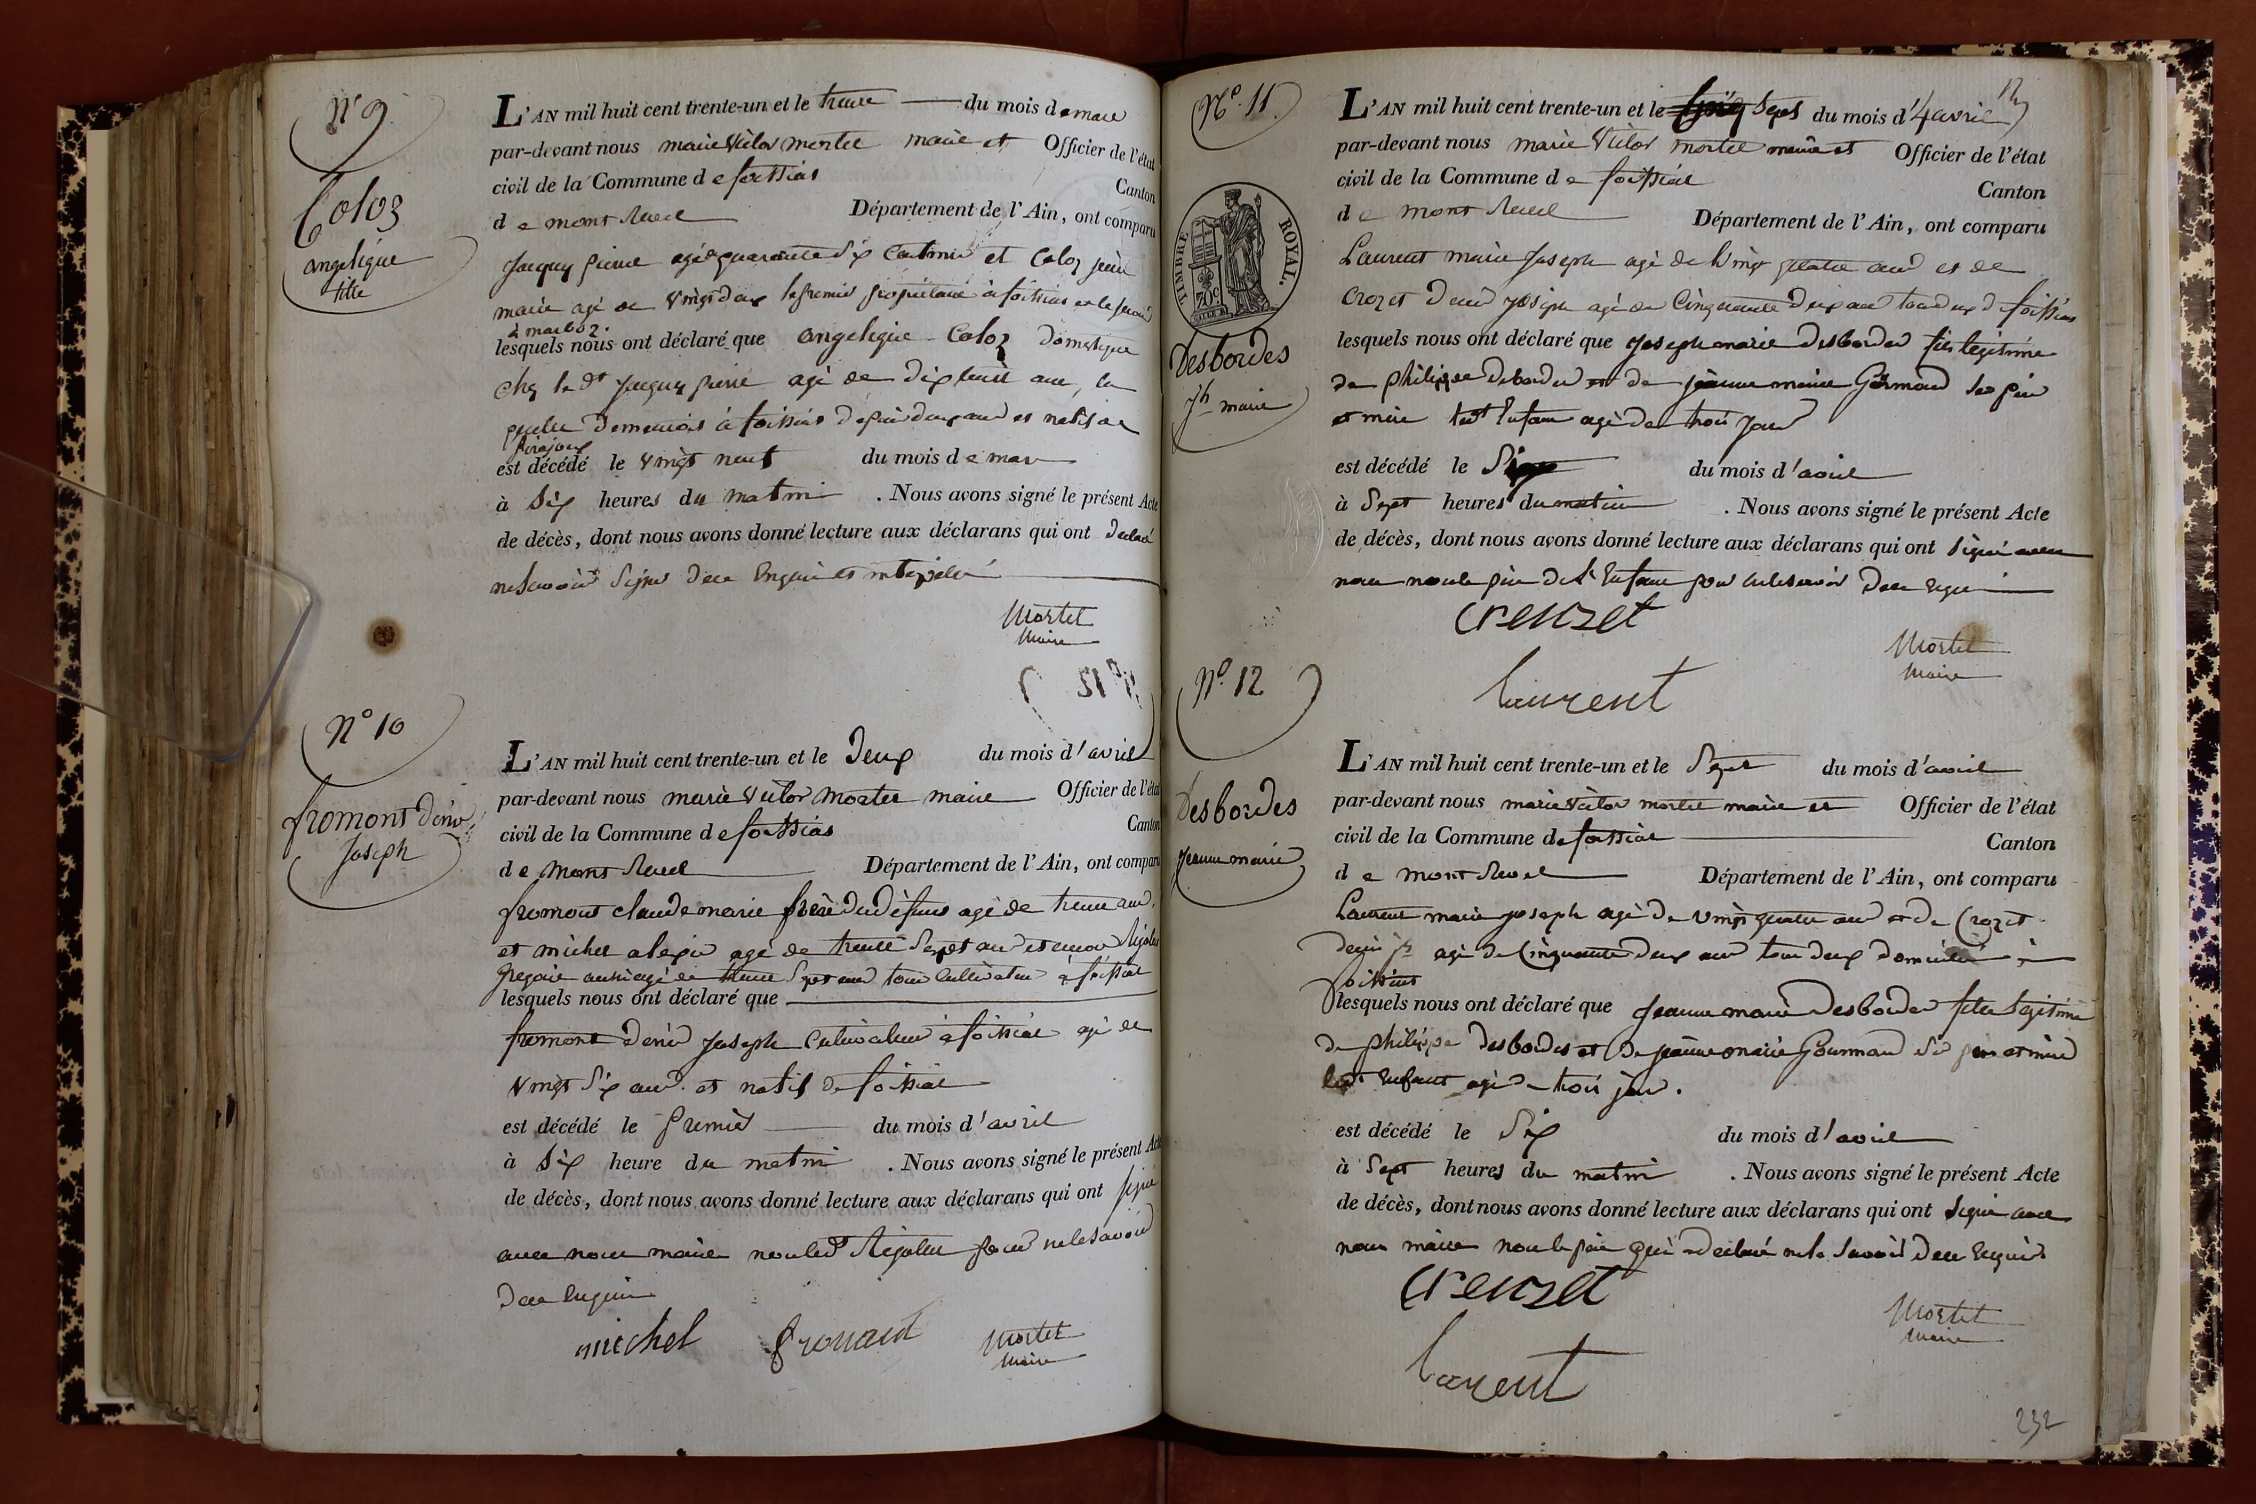 N° 9
Coloz
angelique
fille
L'AN mil huit cent trente-un et le trente du mois de mars
par-devant nous marie Victor mortel maire et Officier de l'état
civil de la Commune de foissiat Canton
de mont Revel Département de l'Ain, ont comparu
Jacquy pierre agé de quarante six cultivateur et Coloz
marie agé de vingt deux le premier propriétaire à foissiat et le second
à marboz.
lesquels nous ont déclaré que angelique Coloz domestique
chez le dt Jacquy pierre agé de dix huit ans, la
quelle demeurois à foissiat depuis deux ans et natif de
pirajoux
est décédé le vingt neuf du mois de mars
à six heures du matin . Nous avons signé le présent Acte
de décès, dont nous avons donné lecture aux déclarans qui ont declaré
ne savoir signer de ce enquis et interpelé
Mortel
Maire
N° 10
fromont denis
Joseph
L'AN mil huit cent trente-un et le deux du mois d'avril
par-devant nous marie Victor Mortel maire Officier de l'état
civil de la Commune de foissiat Canton
de Mont Revel Département de l'Ain, ont comparu
fromont claude marie frère du défunt agé de trente ans,
et michel alexis agé de trente sept ans et encor Rigolet
gregoire aussi agé de trente sept ans tous cultivateur à foissiat
lesquels nous ont déclaré que
fromont denis Joseph cultivateur à foissiat agé de
vingt six ans et natif de foissiat
est décédé le premier du mois d'avril
à six heure du matin . Nous avons signé le présent Acte
de décès, dont nous avons donné lecture aux déclarans qui ont signé
avec nous maire non led Rigolet pour ne le savoir
de ce enquis
michel fromont Mortel
Maire
N° 11.
TIMBRE ROYAL.
Desbordes
jh marie
L'AN mil huit cent trente-un et le sept du mois d'avril
par-devant nous marie Victor mortel maire et Officier de l'état
civil de la Commune de foissiat Canton
de mont Revel Département de l'Ain, ont comparu
Laurent marie Joseph agé de vingt quatre ans et de
crozet denis Joseph agé de cinquante deux ans tous deux de foissiat
lesquels nous ont déclaré que Joseph marie desbordes fils legitime
de philippe desbordes et de jeanne marie Gourmand ses père
et mère led enfant agé de trois jours
est décédé le six du mois d'avril
à sept heures du matin . Nous avons signé le présent Acte
de décès, dont nous avons donné lecture aux déclarans qui ont signé avec
nous non le père de l'enfant pour ne le savoir de ce requis
crouzet
Mortel
Maire
laurent
N° 12
Desbordes
jeanne marie
L'AN mil huit cent trente-un et le sept du mois d'avril
par-devant nous marie Victor mortel maire et Officier de l'état
civil de la Commune de foissiat Canton
de mont Revel Département de l'Ain, ont comparu
Laurent marie joseph agé de vingt quatre ans et de Crozet
denis jh agé de cinquante deux ans tous deux domiciliés à
foissiat
lesquels nous ont déclaré que jeanne marie desbordes fille legitime
de philippe desbordes et de jeanne marie Gourmand ses père et mère
led enfant agé de trois jours.
est décédé le six du mois d'avril
à sept heures du matin . Nous avons signé le présent Acte
de décès, dont nous avons donné lecture aux déclarans qui ont signé avec
nous maire non le père qui a declaré ne le savoir de ce requis
crouzet
Mortel
Maire
laurent
232